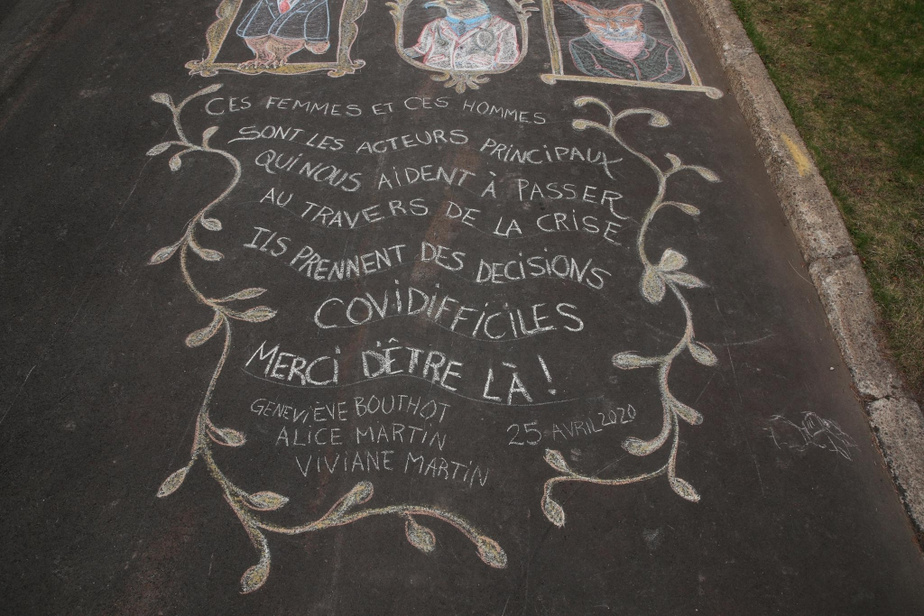 CES FEMMES ET CES HOMMES
SONT LES ACTEURS PRINCIPAUX
QUI NOUS AIDENT À PASSER
AU TRAVERS DE LA CRISE
ILS PRENNENT DES DECISIONS
COVIDIFFICILES
MERCI D'ÊTRE LÀ!
GENEVIÈVE BOUTHOT
ALICE MARTIN
VIVIANE MARTIN
25-AVRIL 2020